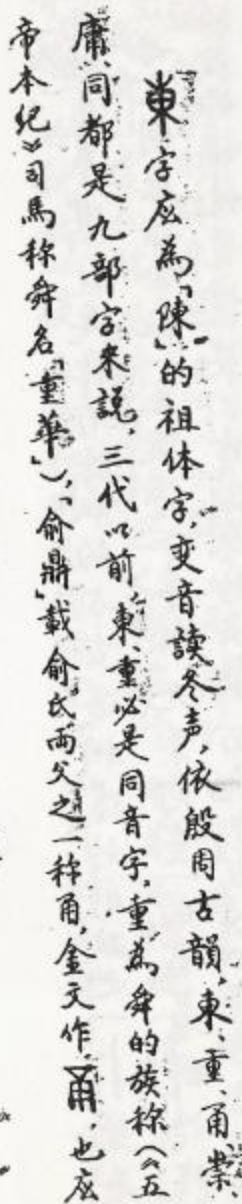 東字应為「陳」的祖体字,变音讀冬声,依殷周古韻,東、重、甬、崇、
庸、同都是九部字来説,三代以前,東、重必是同音字,重為舜的族称(《五
帝本纪》司馬称舜名「重華」),「俞鼎」載俞氏两父之一称甬,金文作甬,也应